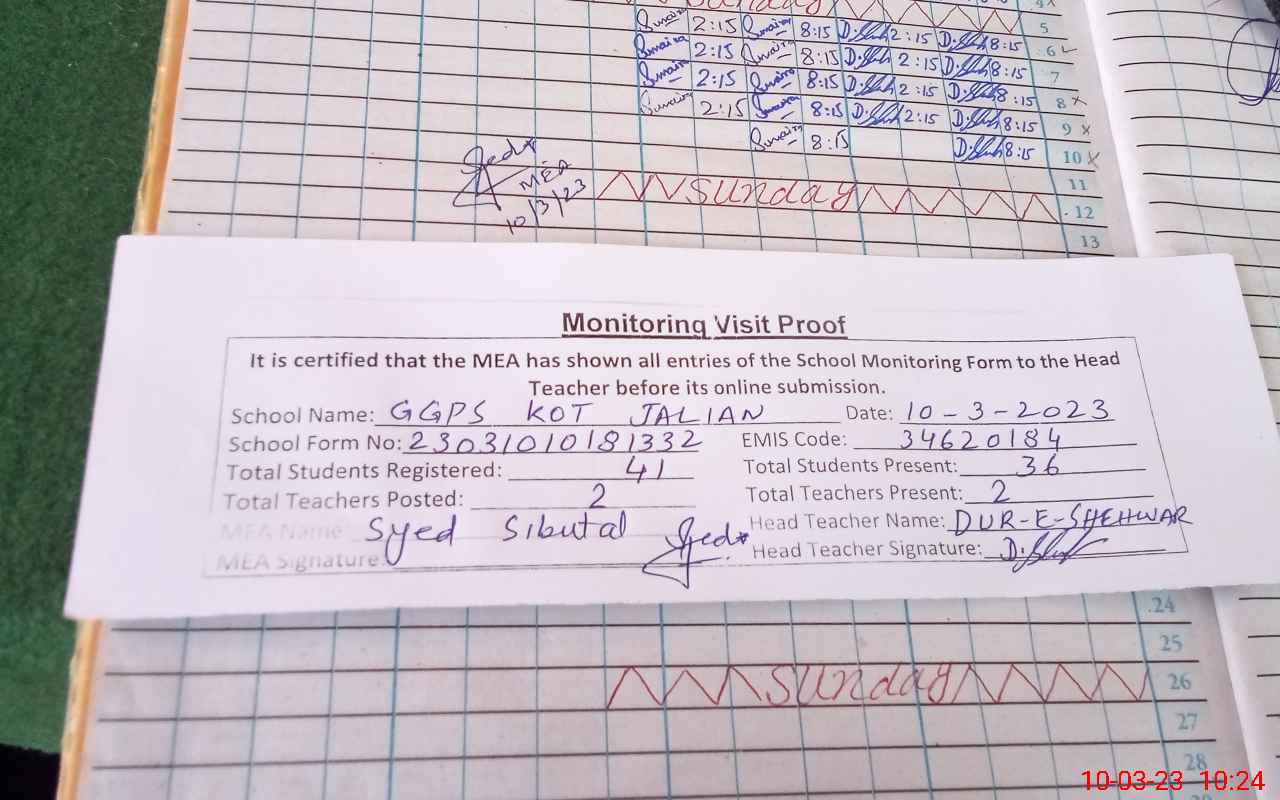 sunday
4x
5
Sumaira 2:15 Sumaira 8:15 D.Sh 2:15 D.Sh 8:15 6
Sumaira 2:15 Sumaira 8:15 D.Sh 2:15 D.Sh 8:15 7
Sumaira 2:15 Sumaira 8:15 D.Sh 2:15 D.Sh 8:15 8 x
Sumaira 2:15 Sumaira 8:15 D.Sh 2:15 D.Sh 8:15 9 x
Sumaira 8:15 D.Sh 8:15 10 x
MEA
10/3/23
11
sunday 12
13
Monitoring Visit Proof
It is certified that the MEA has shown all entries of the School Monitoring Form to the Head
Teacher before its online submission.
School Name: GGPS KOT JALIAN Date: 10-3-2023
School Form No: 23031010181332 EMIS Code: 34620184
Total Students Registered: 41 Total Students Present: 36
Total Teachers Posted: 2 Total Teachers Present: 2
MEA Name: Syed Sibutal Head Teacher Name: DUR-E-SHEHWAR
MEA Signature: Head Teacher Signature:
24
25
sunday 26
27
28
10-03-23 10:24